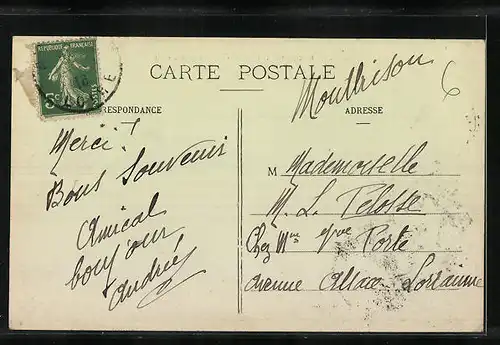 REPUBLIQUE FRANÇAISE
5c
POSTES
CARTE POSTALE
RESPONDANCE
ADRESSE
Merci !
Bons souvenirs
Amical
bonjour
Andrée
Montbrison
6
M Mademoiselle
M. L. Pelosse
Chez Mme Vve Porte
Avenue Alsace Lorraine